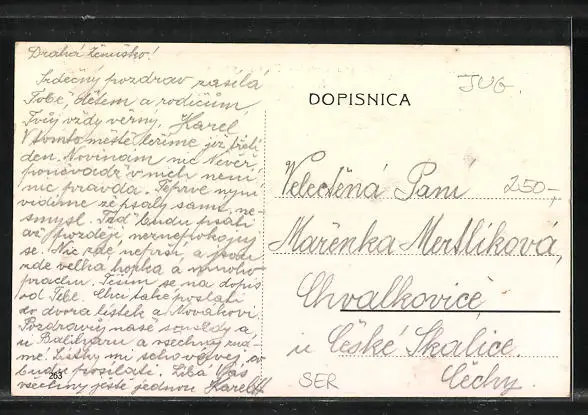 Drahá ženuško!
Srdečný pozdrav zasílá
Tobě, dětem a rodičům,
Tvůj vždy věrný, Karel,
V tomto městě ležíme již třetí
den. Novinám nic nevěř
poněvadž v nich není
nic pravda. Teprve nyní
vidíme že psaly samý ne-
smysl. Teď budu psáti
až později, neznepokojuj
se. Nic zde neprší, a jsou
zde velká horka a mnoho
prachu. Těším se na dopis
od Tebe. Chci také poslati
do dvora lístek a Novákovi.
Pozdravuj naše sousedy a
u Balcharu a všechny zná-
mé! Lístky mi schovávej, co
budu posílati. Líbá Vás
všechny ještě jednou Karel
263
DOPISNICA
JUG.
Velectěná Paní
250-,
Mařenka Mertlíková,
Chvalkovice,
u České Skalice.
SER
Čechy.